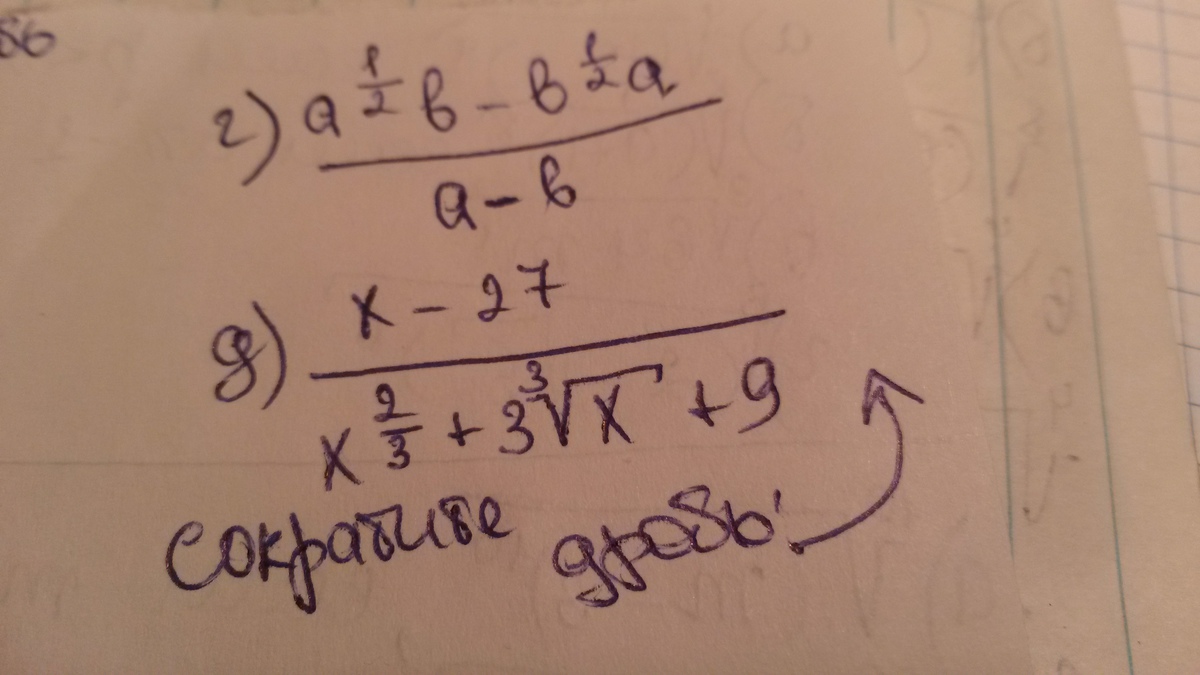 86
г) a^{\frac{1}{2}} b - b^{\frac{1}{2}} a
a - b
д) x - 27
x^{\frac{2}{3}} + 3\sqrt[3]{x} + 9
сократите дробь!